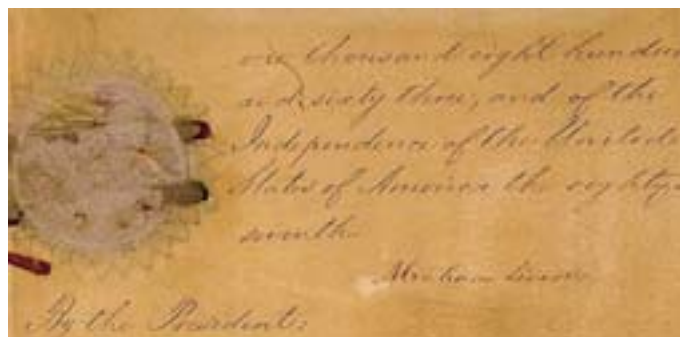 one thousand eight hundred
and sixty three, and of the
Independence of the United
States of America the eighty-
seventh.
Abraham Lincoln
By the President: